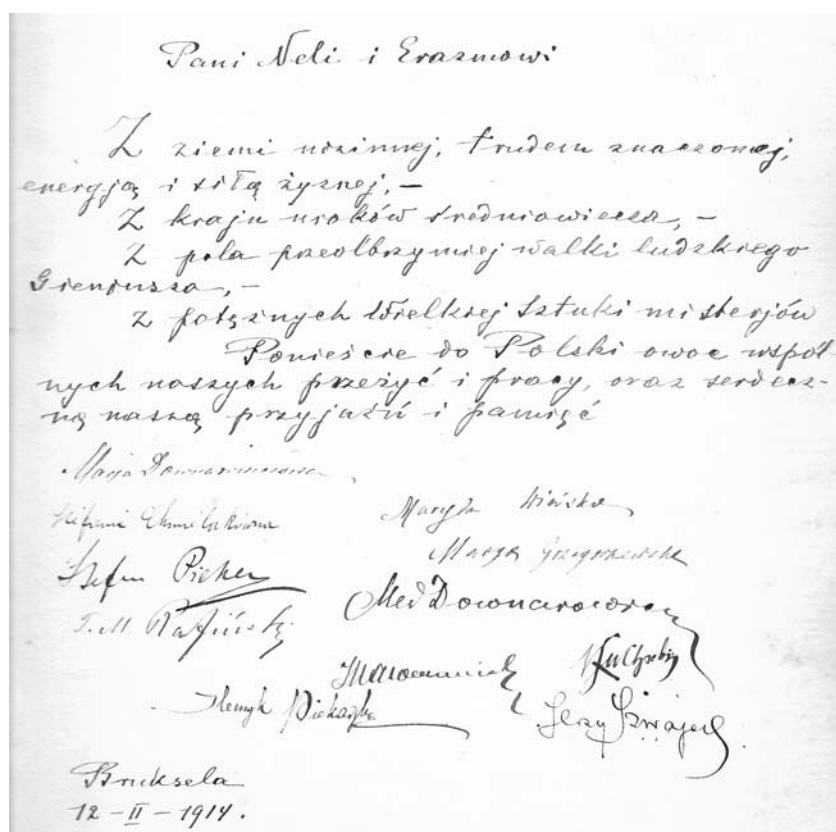 Pani Neli i Erazmowi
Z ziemi nizinnej, trudem znaczonej,
energją i siłą żyznej, –
Z kraju uroków średniowiecza, –
Z pola przeolbrzymiej walki ludzkiego
Gieniusza, –
Z potężnych Wielkiej Sztuki misterjów
Ponieście do Polski owoc wspól
nych naszych przeżyć i pracy, oraz serdecz-
ną naszą przyjaźń i pamięć
Marja Downarowiczowa
Stefania Chmielakówna
Maryla
Marya Grzegorzewska
Stefan
Med Downarowicz
T. M.
Henryk
Jerzy Szwajcer
Bruksela
12 – II – 1914.